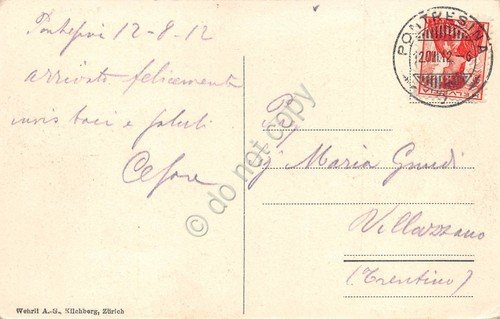 12-8-12
arrivato felicemente
invio baci e saluti
Cesare
PONTRESINA
12.VIII.12 - 6
HELVETIA
Maria Gnudi
Villazzano
(Trentino)
Wehrli A.-G., Kilchberg, Zürich
© do not copy